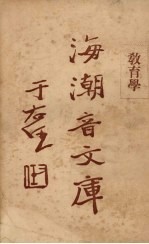 敎育學
海潮音文庫
于右任